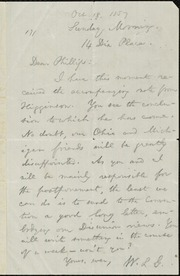 Oct. 18, 1857
Sunday Morning
14 Dix Place.
Dear Phillips:
I have this moment re-
ceived the accompanying note from
Higginson. You see the conclu-
sion to which he has come.
No doubt, our Ohio and Mich-
igan friends will be greatly
disappointed. As you and I
will be mainly responsible for
the postponement, the best we
can do is to send to the Conven-
tion a good long letter, em-
bodying our Disunion views. You
will write something in the course
of a week — won't you?
Yours, ever,
W. L. G.